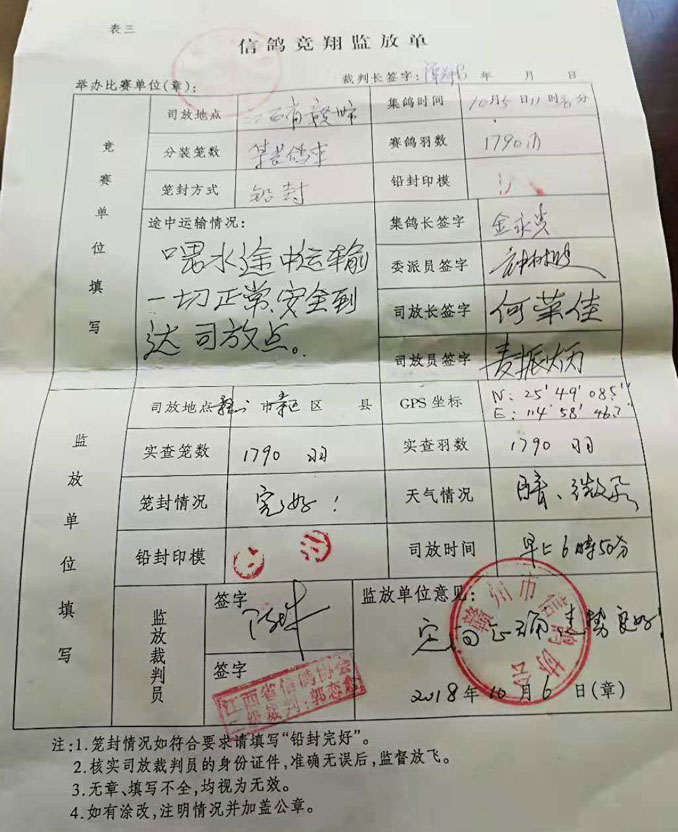 表三
信鸽竞翔监放单
举办比赛单位(章): 裁判长签字: 年 月 日
竞赛单位填写
司放地点 江西省赣州 集鸽时间 10月5日11时 分
分装笼数 集装鸽车 赛鸽羽数 1790羽
笼封方式 铅封 铅封印模
途中运输情况: 集鸽长签字 金永贵
喂水途中运输
一切正常安全到
达司放点。
委派员签字
司放长签字 何荣佳
司放员签字 麦振炳
监放单位填写
司放地点 市 区 县 GPS坐标 N: 25'49'085"
E: 114'58'467"
实查笼数 1790 羽 实查羽数 1790 羽
笼封情况 完好! 天气情况 晴、微风
铅封印模 司放时间 早上6時50分
监放裁判员
签字
签字
江西省信鸽协会
裁判:郭恋
监放单位意见:
定向正确走势良好!
赣州市信鸽协会
2018年10月6日(章)
注:1.笼封情况如符合要求请填写“铅封完好”。
2.核实司放裁判员的身份证件,准确无误后,监督放飞。
3.无章、填写不全,均视为无效。
4.如有涂改,注明情况并加盖公章。